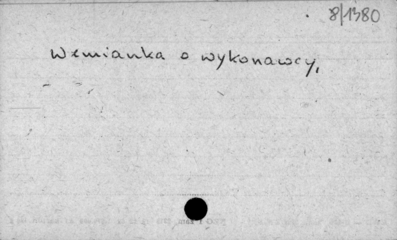 8/1380
Wzmianka o wykonawcy,